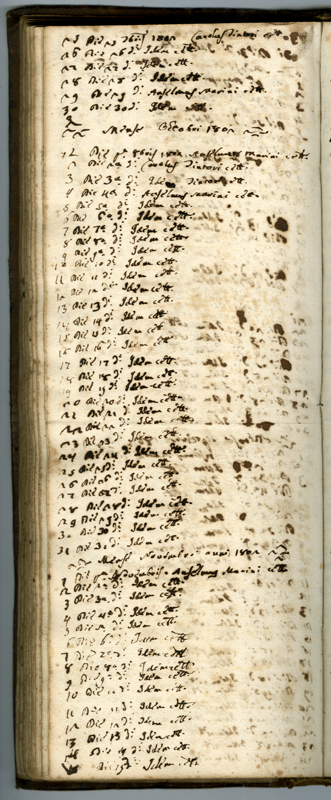 25 Die 25 7bris 1802 Carolus Diatovi cett.
26 Die 26 d: Idem cett.
27 Die 27 d: Idem cett.
28 Die 28 d: Idem cett.
29 Die 29 d: Anselmus Mariai cett.
30 Die 30 d: Idem cett.
Mense Octobri 1802
1 Die 1a 8bris 1802 Anselmus Mariai cett.
2 Die 2a d: Carolus Diatovi cett.
3 Die 3a d: Idem Diatovi cett.
4 Die 4a d: Anselmus Mariai cett.
5 Die 5a d: Idem cett.
6 Die 6a d: Idem cett.
7 Die 7a d: Idem cett.
8 Die 8a d: Idem cett.
9 Die 9a d: Idem cett.
10 Die 10 d: Idem cett.
11 Die 11 d: Idem cett.
12 Die 12 d: Idem cett.
13 Die 13 d: Idem cett.
14 Die 14 d: Idem cett.
15 Die 15 d: Idem cett.
16 Die 16 d: Idem cett.
17 Die 17 d: Idem cett.
18 Die 18 d: Idem cett.
19 Die 19 d: Idem cett.
20 Die 20 d: Idem cett.
21 Die 21 d: Idem cett.
22 Die 22 d: Idem cett.
23 Die 23 d: Idem cett.
24 Die 24 d: Idem cett.
25 Die 25 d: Idem cett.
26 Die 26 d: Idem cett.
27 Die 27 d: Idem cett.
28 Die 28 d: Idem cett.
29 Die 29 d: Idem cett.
30 Die 30 d: Idem cett.
31 Die 31 d: Idem cett.
Mense Novembri anni 1802
1 Die 1a Novembris Anselmus Mariai cett.
2 Die 2a d: Idem cett.
3 Die 3a d: Idem cett.
4 Die 4a d: Idem cett.
5 Die 5a d: Idem cett.
6 Die 6a d: Idem cett.
7 Die 7a d: Idem cett.
8 Die 8a d: Idem cett.
9 Die 9a d: Idem cett.
10 Die 10 d: Idem cett.
11 Die 11 d: Idem cett.
12 Die 12 d: Idem cett.
13 Die 13 d: Idem cett.
14 Die 14 d: Idem cett.
15 Die 15 d: Idem cett.